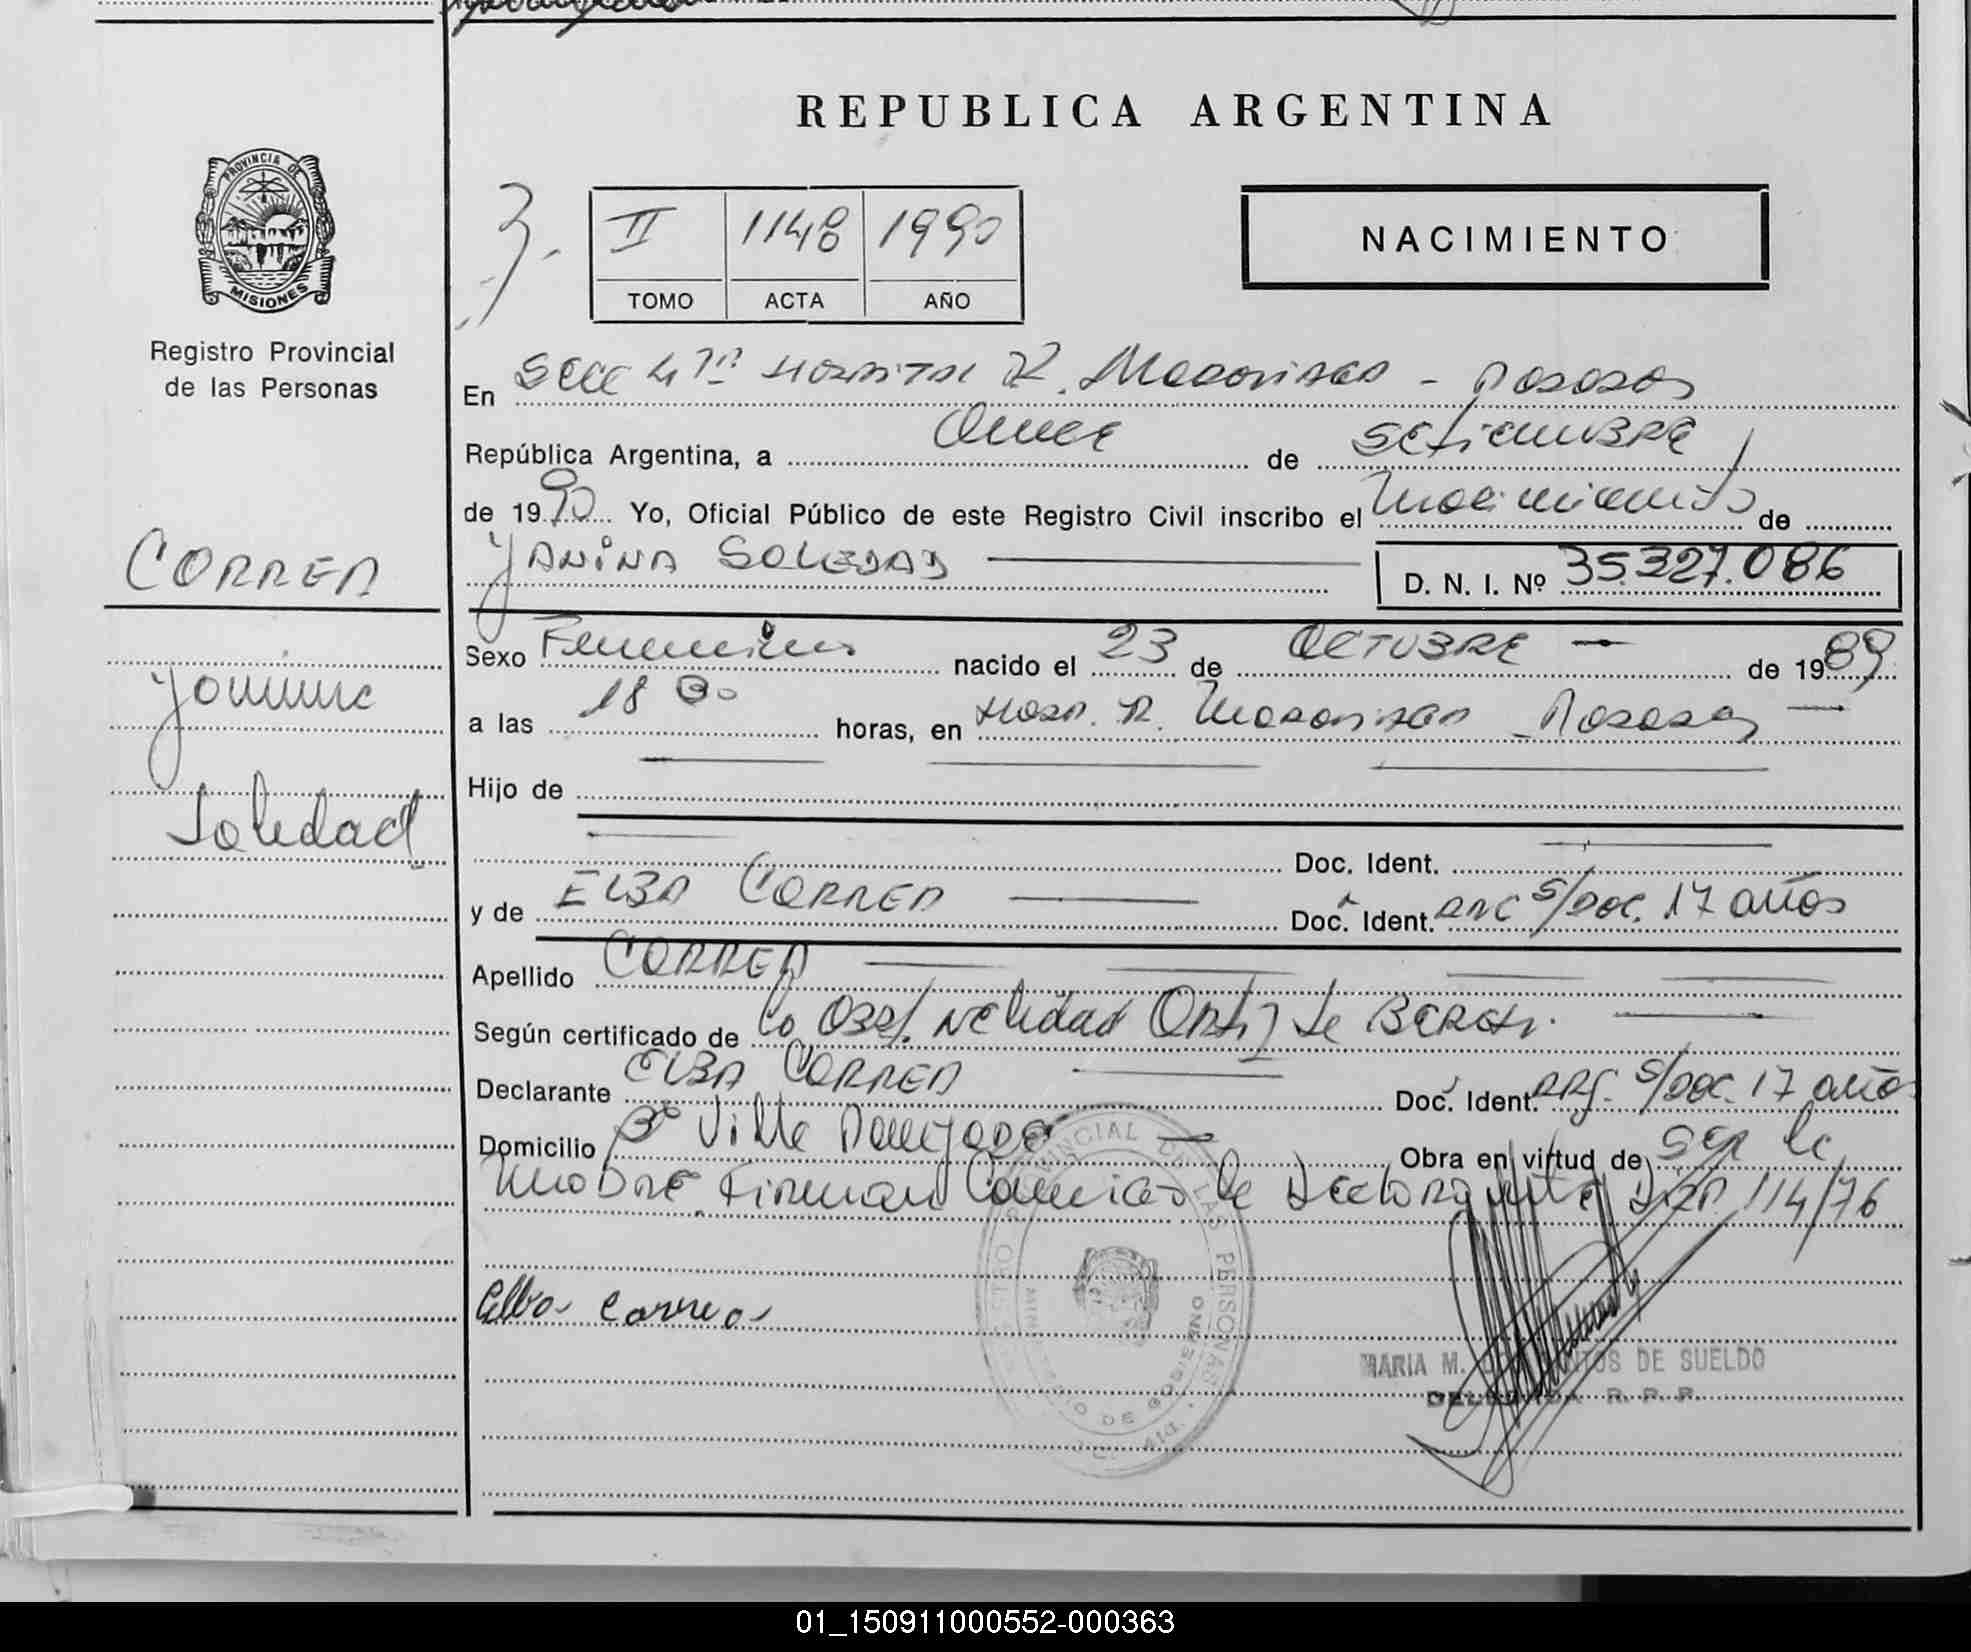 REPUBLICA ARGENTINA
PROVINCIA DE
MISIONES
Registro Provincial
de las Personas
3.
II 1148 1990
TOMO ACTA AÑO
NACIMIENTO
En Secc 4ta Hospital R. Madariaga - Posadas
República Argentina, a Once de Setiembre
de 1990 Yo, Oficial Público de este Registro Civil inscribo el Nacimiento de
YANINA SOLEDAD
D. N. I. Nº 35.327.086
CORREA
Yanina
Soledad
Sexo Femenino nacido el 23 de OCTUBRE de 1989
a las 18 30 horas, en Hosp. R. Madariaga - Posadas
Hijo de
Doc. Ident.
y de ELBA CORREA Doc. Ident. ARG s/Doc. 17 años
Apellido CORREA
Según certificado de la Obst. Nelidad Ortiz de
Declarante ELBA CORREA Doc. Ident. ARG. s/Doc. 17 años
Domicilio Bº Villa Obra en virtud de ser la
Madre Firman de 114/76
Elba Correa
REGISTRO PROVINCIAL DE LAS PERSONAS
MINISTERIO DE GOBIERNO
MARIA M. DE SUELDO
DELEGADA R. P. P.
01_150911000552-000363